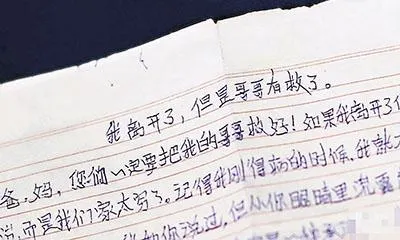 我离开了，但是哥哥有救了。
爸，妈，您们一定要把我的哥哥救好！如果我离开了
说，而是我们家太穷了。记得我刚得病的时候，我就
你说过，但从你眼睛里流露